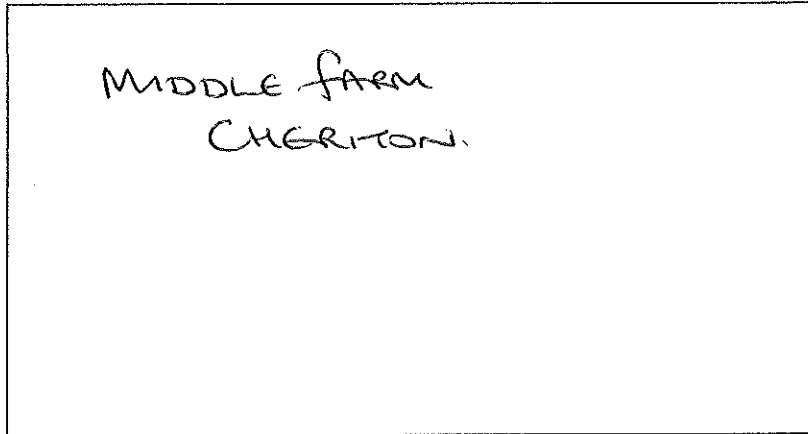 MIDDLE FARM
CHERITON.